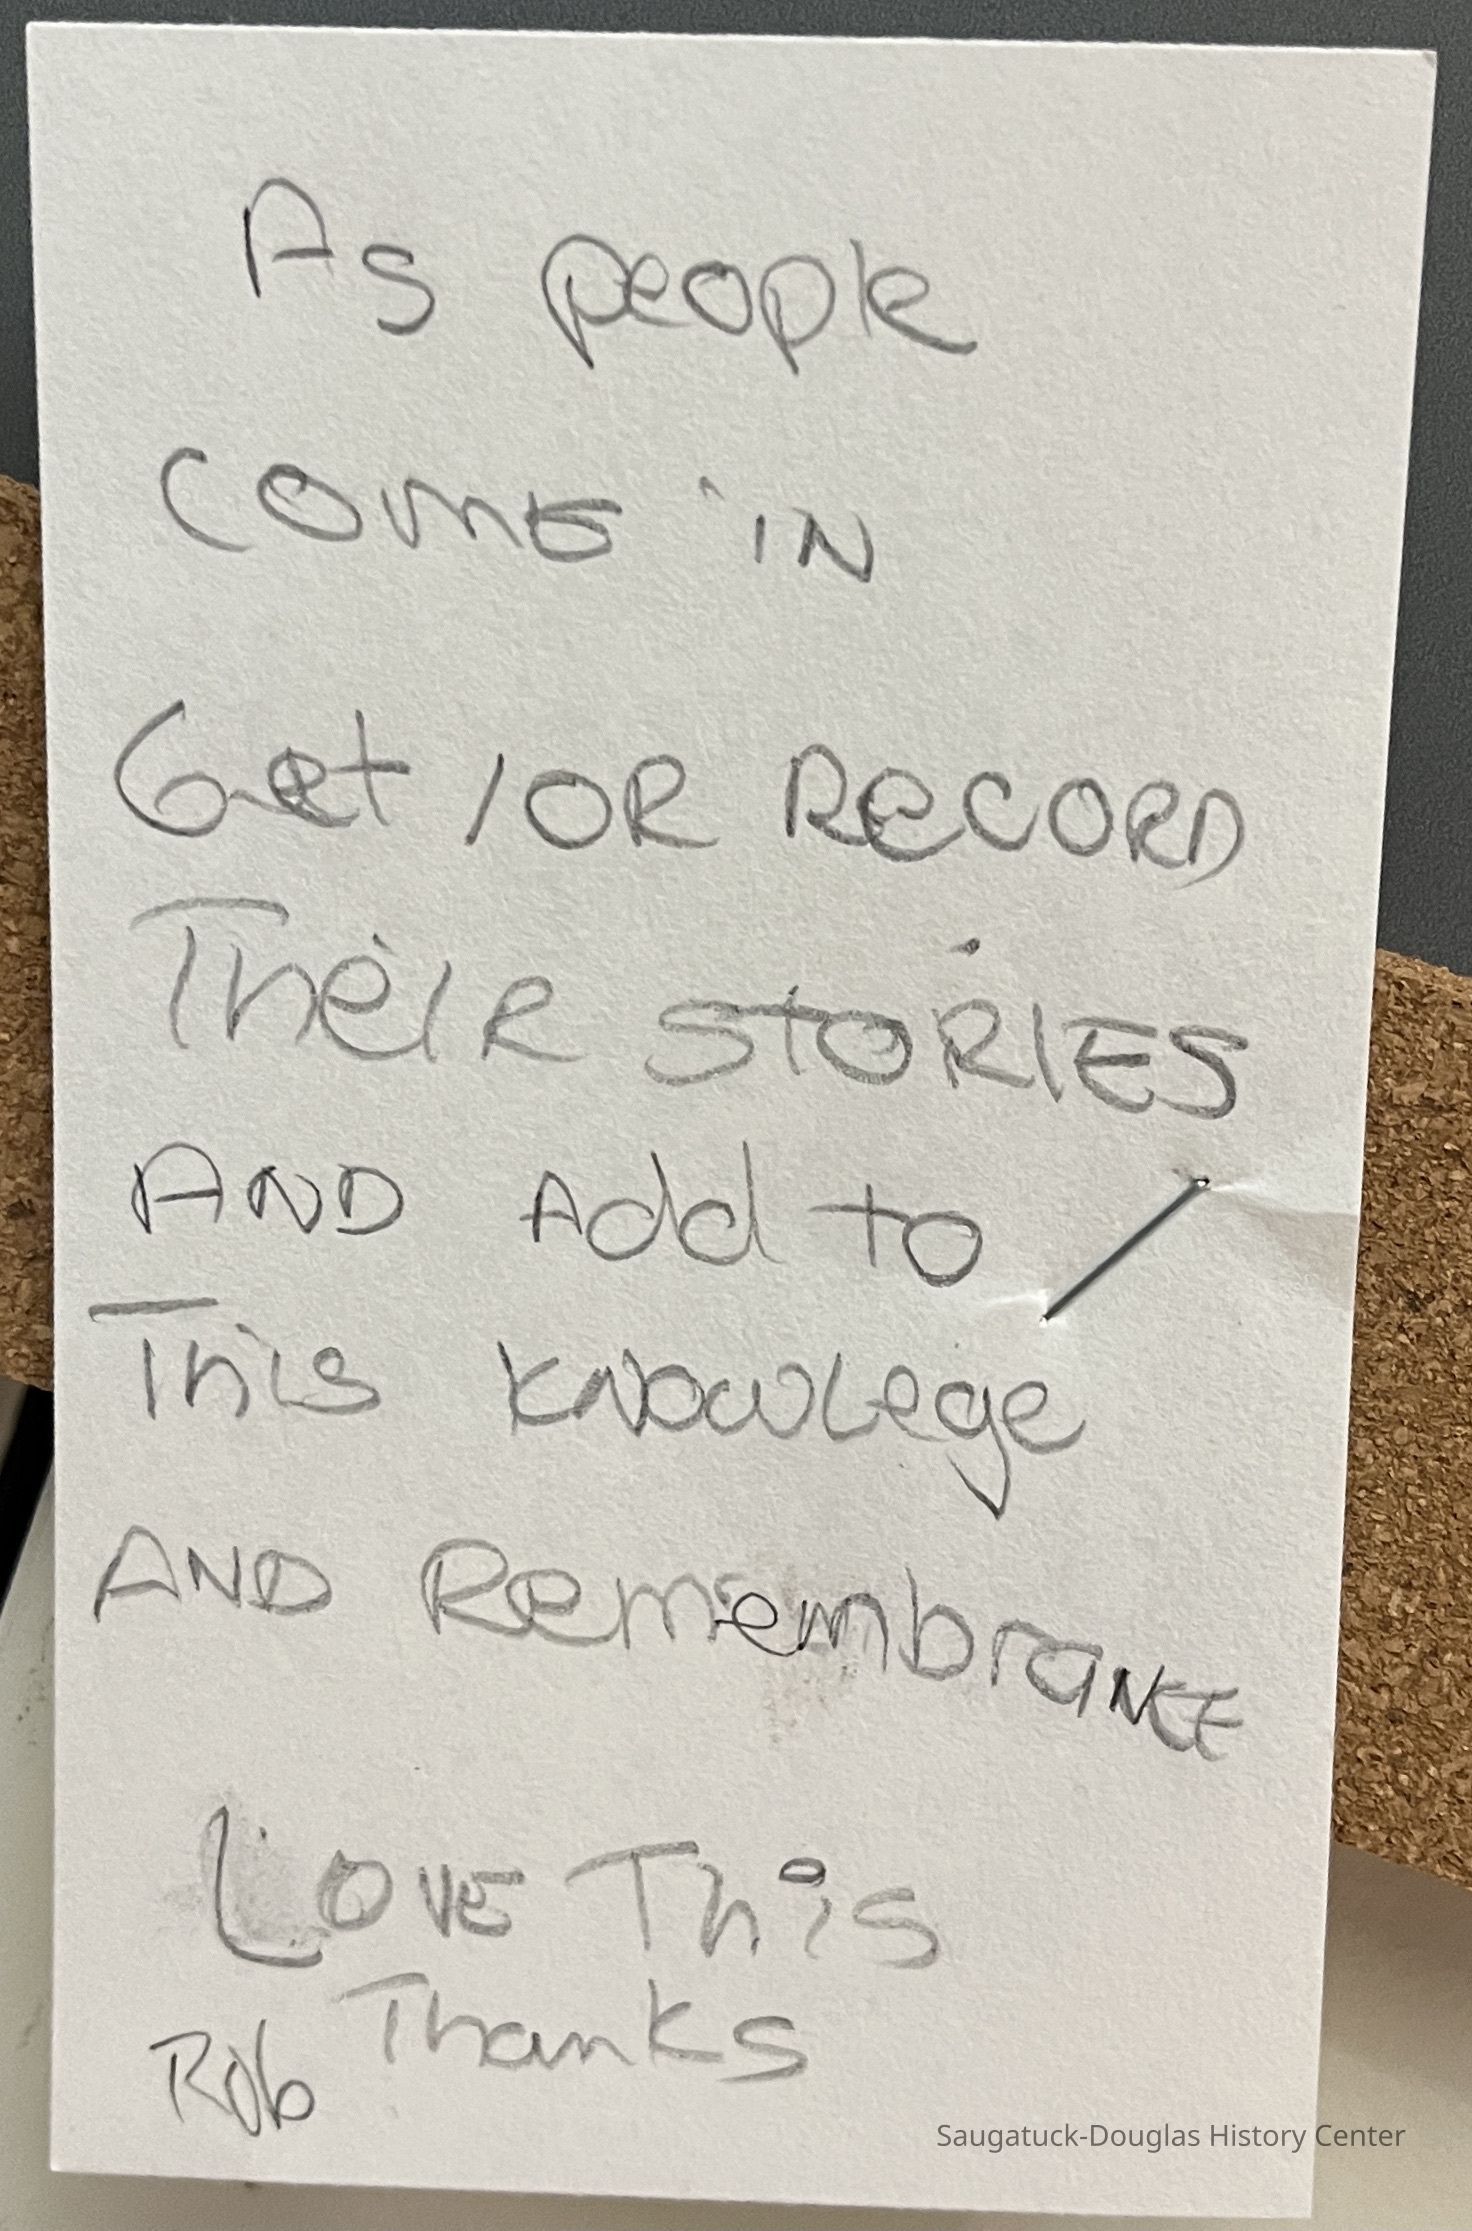 As people
come iN
Get / OR RecORD
TheiR StORIES
AND Add to
This KNowLege
AND RemembraNCE
LOVE This
Thanks
Rob
Saugatuck-Douglas History Center